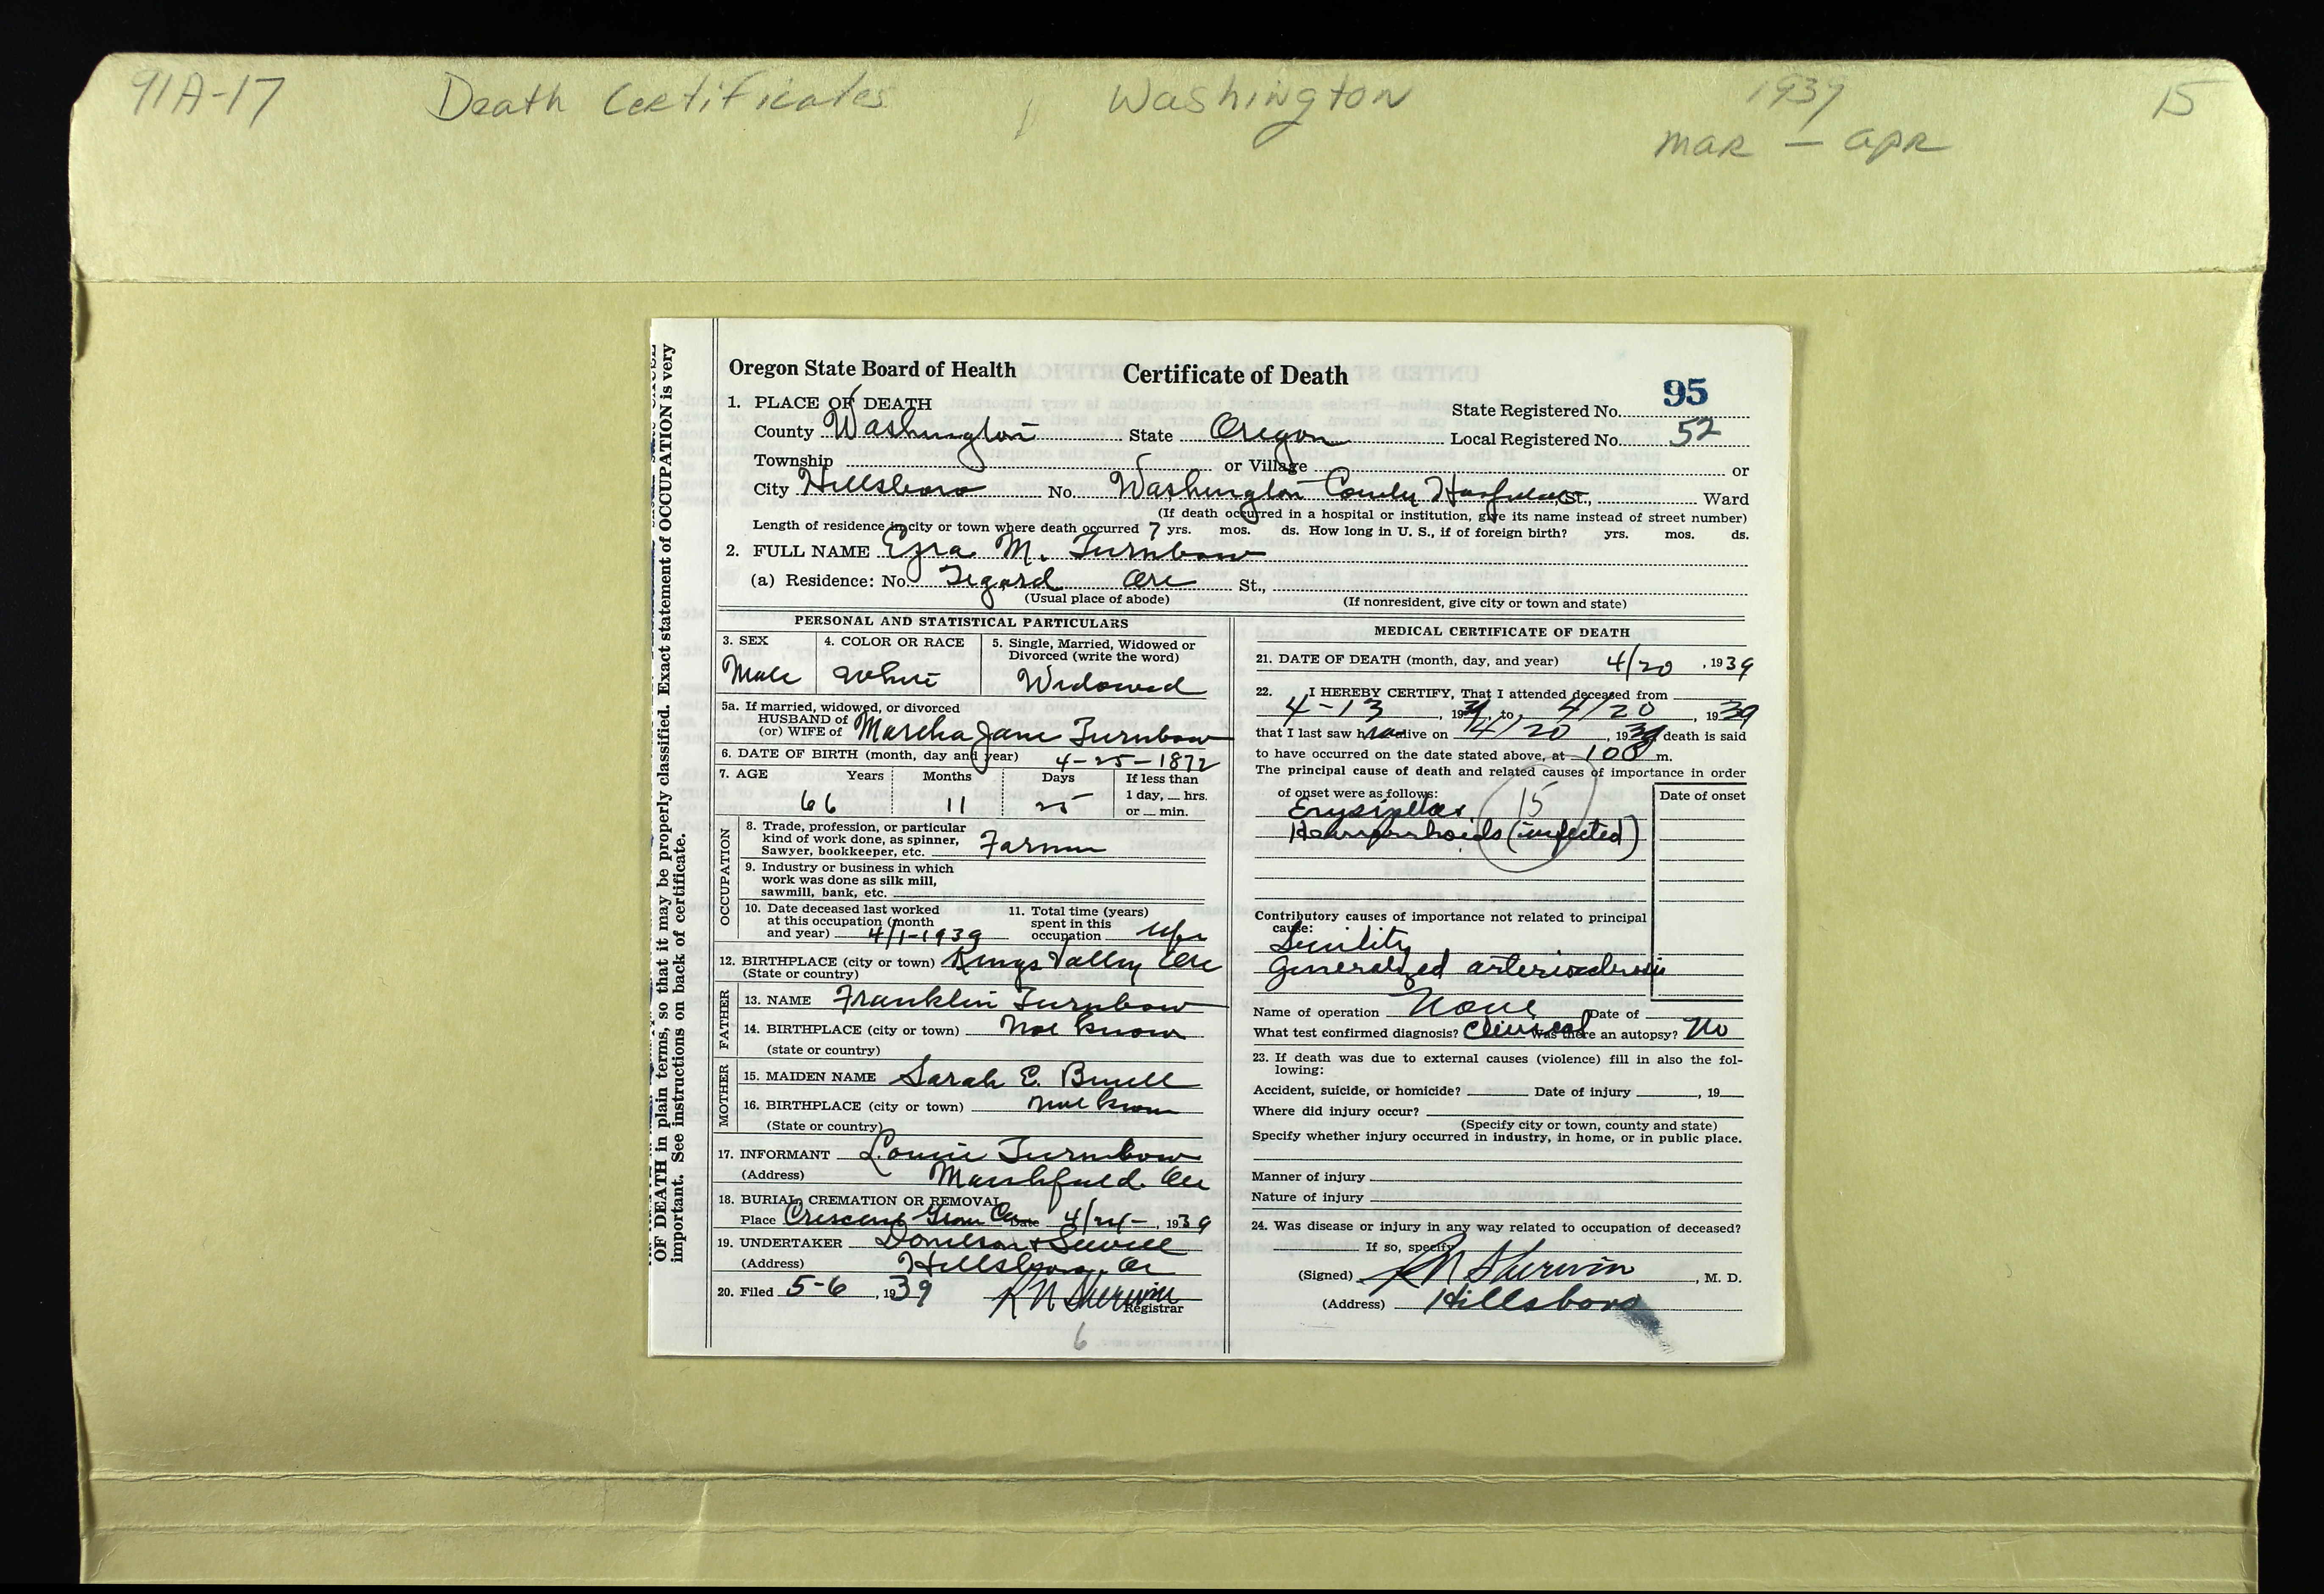 91A-17 Death Certificates , Washington 1939 15
mar — apr
OF DEATH in plain terms, so that it may be properly classified. Exact statement of OCCUPATION is very
important. See instructions on back of certificate.
Oregon State Board of Health Certificate of Death
95
1. PLACE OF DEATH State Registered No.
County Washington State Oregon Local Registered No. 52
Township or Village or
City Hillsboro No. Washington County Hospital St., Ward
(If death occurred in a hospital or institution, give its name instead of street number)
Length of residence in city or town where death occurred 7 yrs. mos. ds. How long in U. S., if of foreign birth? yrs. mos. ds.
2. FULL NAME Ezra M. Turnbow
(a) Residence: No. Tegard Ore St.,
(Usual place of abode) (If nonresident, give city or town and state)
PERSONAL AND STATISTICAL PARTICULARS
3. SEX 4. COLOR OR RACE 5. Single, Married, Widowed or
Divorced (write the word)
Male White Widowed
5a. If married, widowed, or divorced
HUSBAND of
(or) WIFE of Martha Jane Turnbow
6. DATE OF BIRTH (month, day and year) 4-25-1872
7. AGE Years Months Days If less than
1 day, hrs.
66 11 25 or min.
OCCUPATION
8. Trade, profession, or particular
kind of work done, as spinner,
Sawyer, bookkeeper, etc. Farmer
9. Industry or business in which
work was done as silk mill,
sawmill, bank, etc.
10. Date deceased last worked
at this occupation (month
and year) 4/1-1939
11. Total time (years)
spent in this
occupation Life
12. BIRTHPLACE (city or town) Kings Valley Ore
(State or country)
FATHER
13. NAME Franklin Turnbow
14. BIRTHPLACE (city or town) Not Known
(state or country)
MOTHER
15. MAIDEN NAME Sarah E.
16. BIRTHPLACE (city or town) Not Known
(State or country)
17. INFORMANT Turnbow
(Address) Marshfield. Ore
18. BURIAL, CREMATION OR REMOVAL
Place Crescent Grove Date 4/24-, 1939
19. UNDERTAKER Donelson & Sewell
(Address) Hillsboro, Or
20. Filed 5-6, 1939 Registrar
6
MEDICAL CERTIFICATE OF DEATH
21. DATE OF DEATH (month, day, and year) 4/20, 1939
22. I HEREBY CERTIFY, That I attended deceased from
4-13, 1939, to 4/20, 1939
that I last saw him alive on 4/20, 1939 death is said
to have occurred on the date stated above, at 100 m.
The principal cause of death and related causes of importance in order
of onset were as follows: Date of onset
Erysipelas 15
Hemorrhoids (infected)
Contributory causes of importance not related to principal
cause:
Senility
Generalized arteriosclerosis
Name of operation None Date of
What test confirmed diagnosis? Clinical Was there an autopsy? No
23. If death was due to external causes (violence) fill in also the fol-
lowing:
Accident, suicide, or homicide? Date of injury , 19
Where did injury occur?
(Specify city or town, county and state)
Specify whether injury occurred in industry, in home, or in public place.
Manner of injury
Nature of injury
24. Was disease or injury in any way related to occupation of deceased?
If so, specify
(Signed) Sherwin, M. D.
(Address) Hillsboro